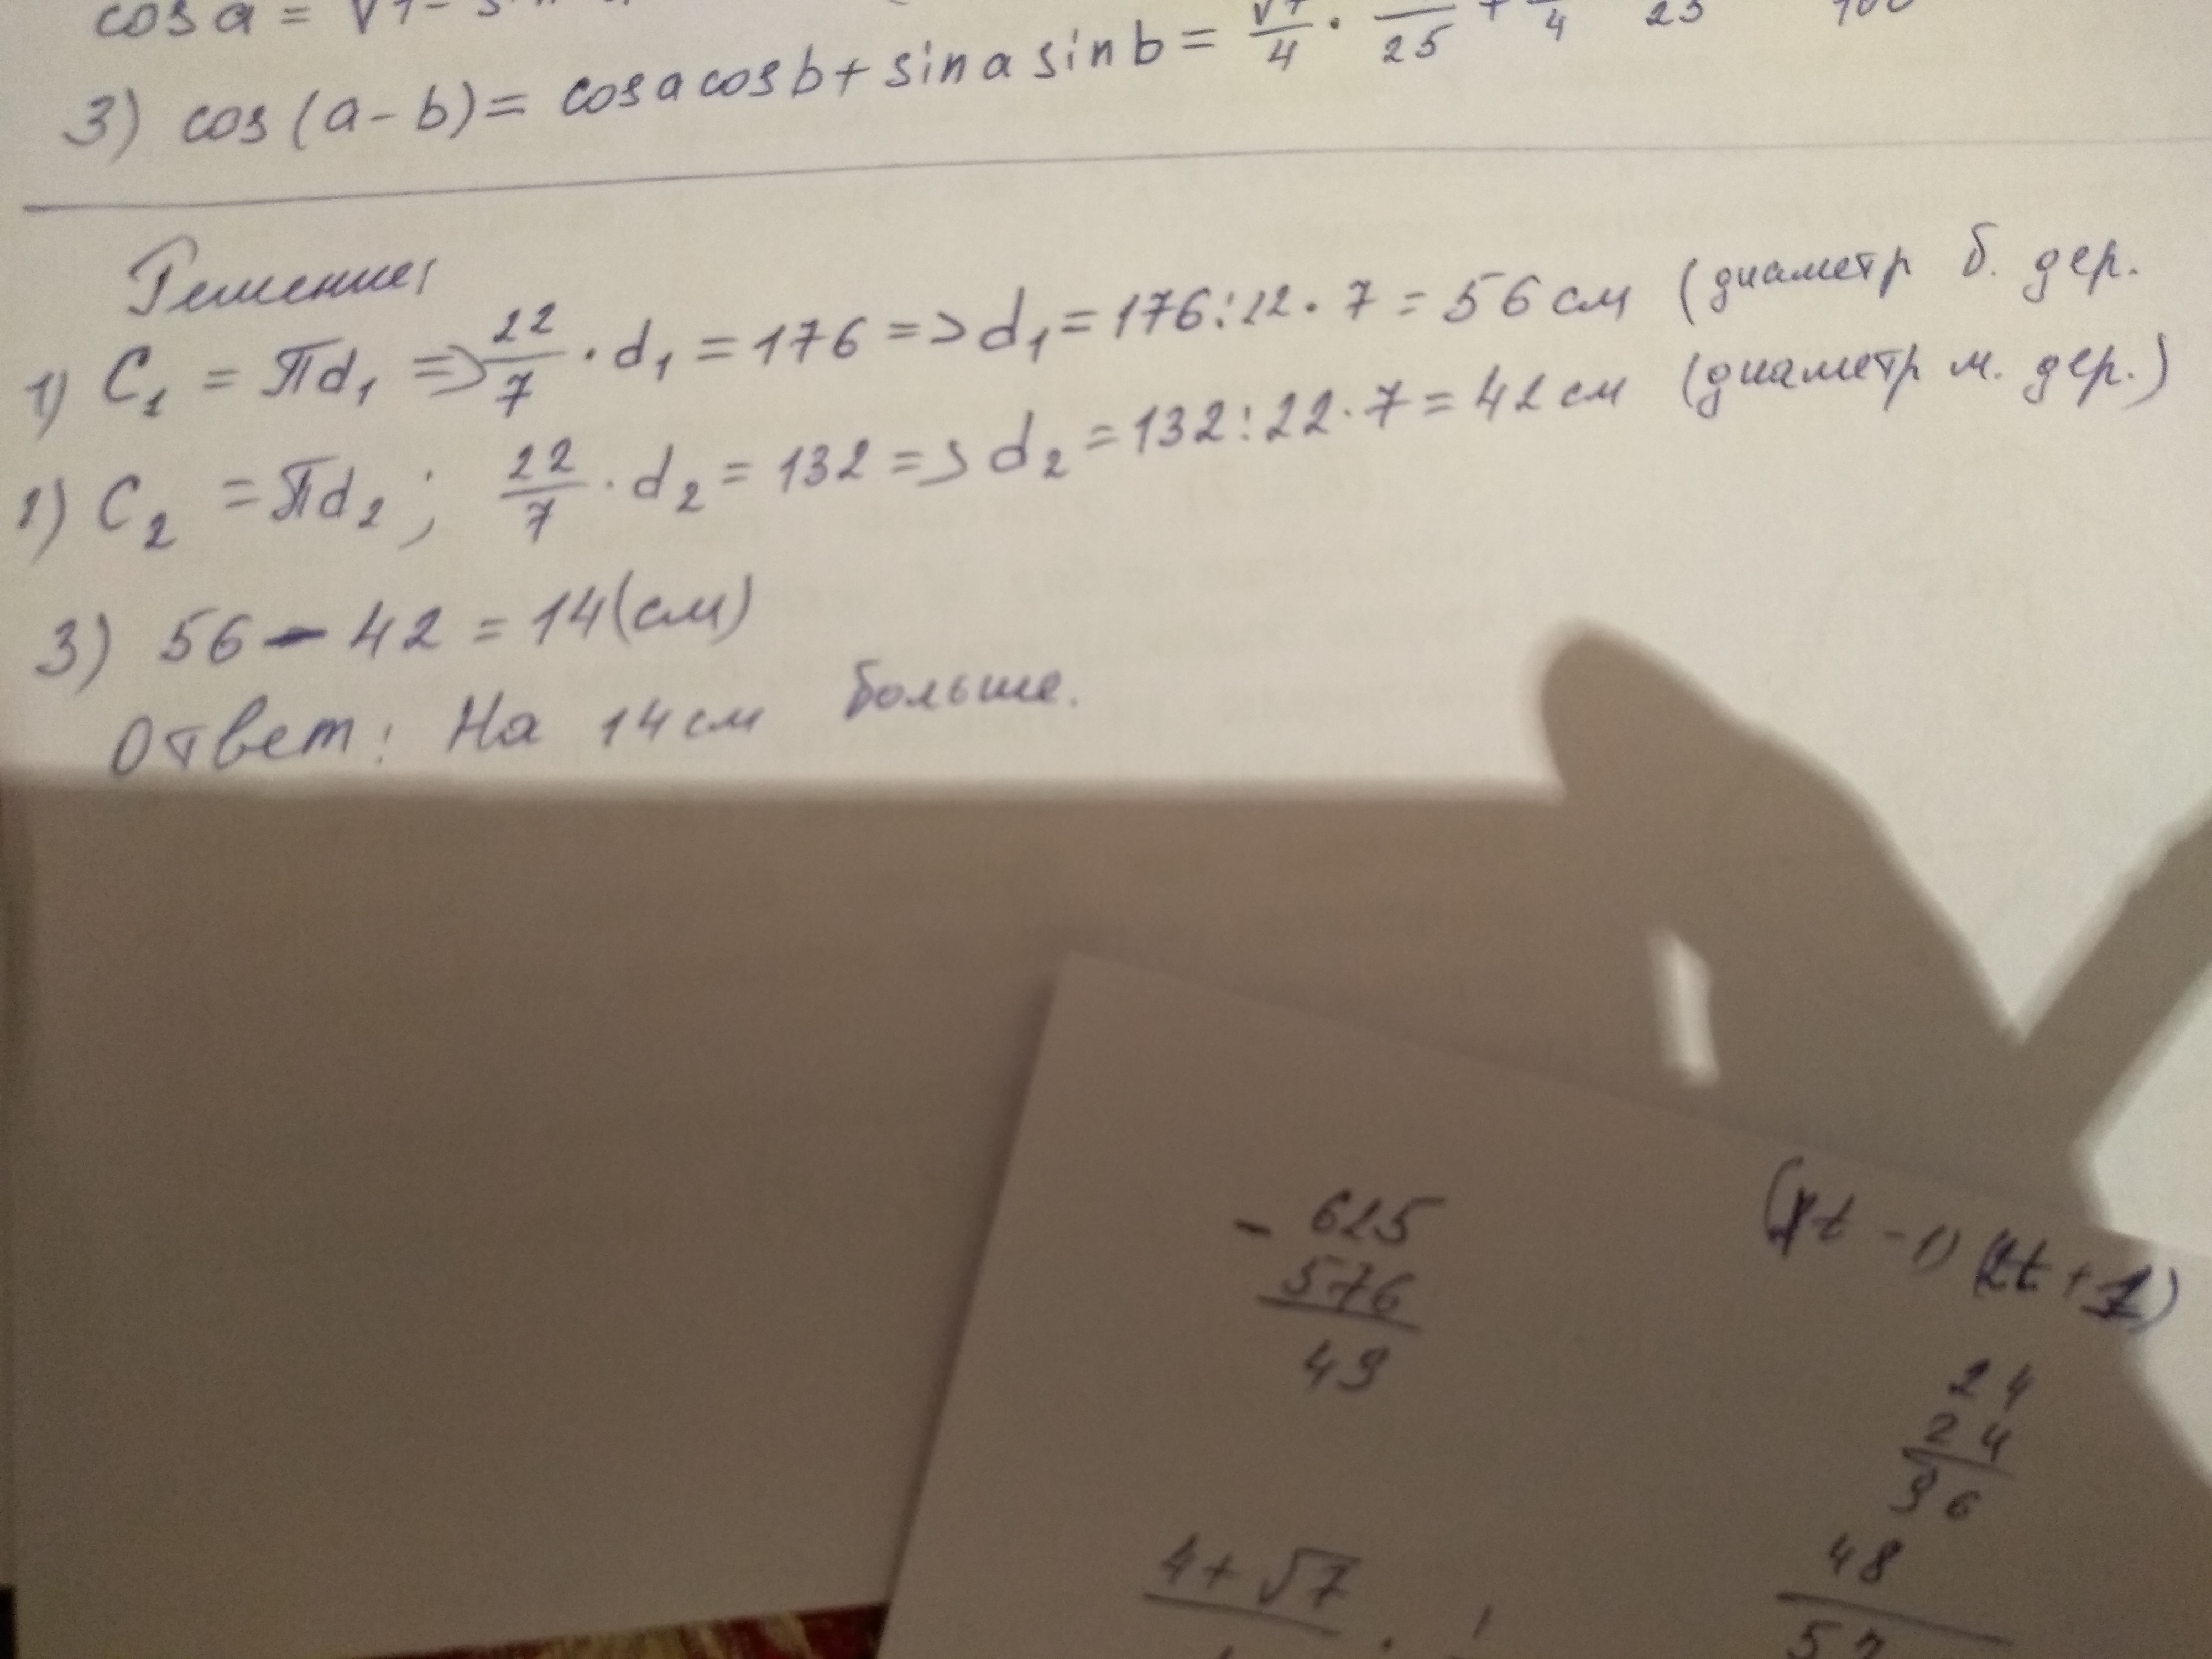 cos a = √1 - sin
3) cos (a - b) = cos a cos b + sin a sin b = √7/4 · /25 + /4 25 100
Решение:
1) C₁ = πd₁ => 22/7 · d₁ = 176 => d₁ = 176:22 · 7 = 56 см (диаметр б. дер.
2) C₂ = πd₂; 22/7 · d₂ = 132 => d₂ = 132:22 · 7 = 42 см (диаметр м. дер.)
3) 56 - 42 = 14 (см)
Ответ: На 14 см больше.
- 625
576
49
(t - 1) (2t + 7)
24
24
96
48
57
4 + √7